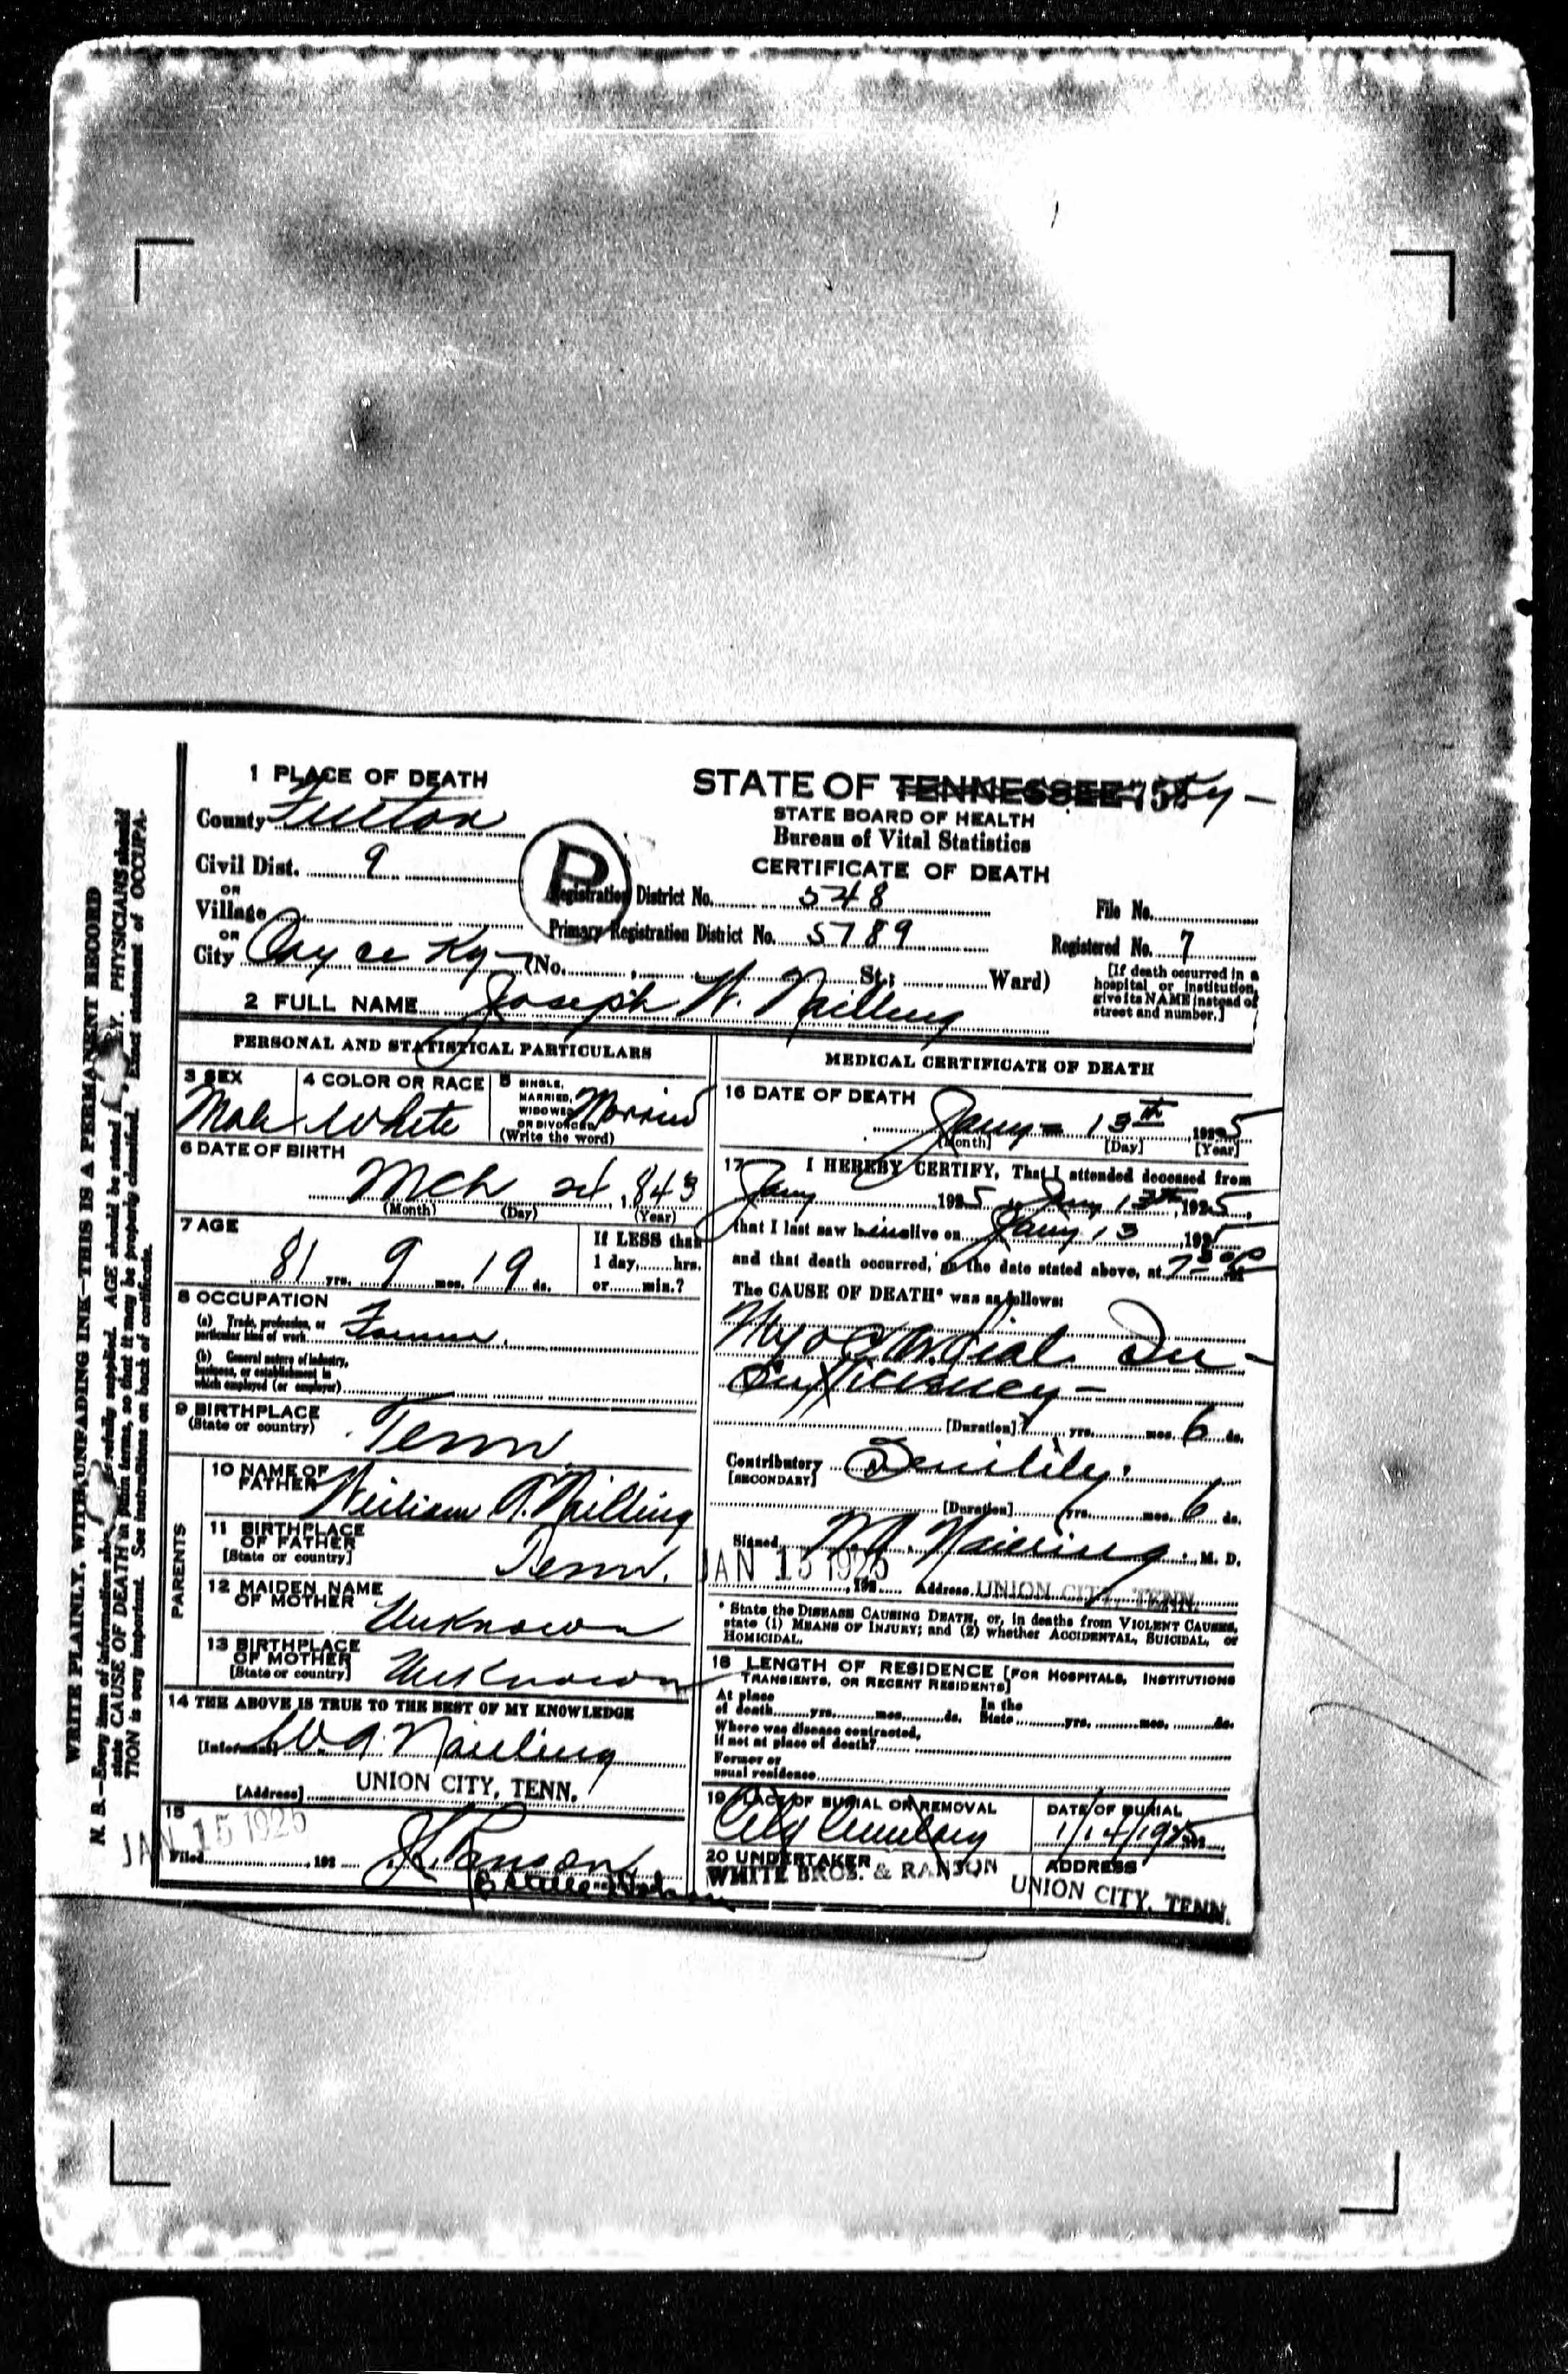 1 PLACE OF DEATH
County Fulton
Civil Dist. 9
OR
Village
OR
City Cayce Ky (No. , St.; Ward)
STATE OF TENNESSEE Ky
STATE BOARD OF HEALTH
Bureau of Vital Statistics
CERTIFICATE OF DEATH
P
Registration District No. 548
Primary Registration District No. 5789
File No.
Registered No. 7
[If death occurred in a
hospital or institution,
give its NAME instead of
street and number.]
2 FULL NAME Joseph W. Nailling
PERSONAL AND STATISTICAL PARTICULARS
3 SEX
Male
4 COLOR OR RACE
White
5 SINGLE,
MARRIED,
WIDOWED
OR DIVORCED
(Write the word)
Married
6 DATE OF BIRTH
Mch 24, 1843
(Month) (Day) (Year)
7 AGE
81 yrs. 9 mos. 19 ds.
If LESS than
1 day, hrs.
or min.?
8 OCCUPATION
(a) Trade, profession, or
particular kind of work Farmer.
(b) General nature of industry,
business, or establishment in
which employed (or employer)
9 BIRTHPLACE
(State or country)
Tenn.
PARENTS
10 NAME OF
FATHER William Nailling
11 BIRTHPLACE
OF FATHER
[State or country] Tenn.
12 MAIDEN NAME
OF MOTHER Unknown
13 BIRTHPLACE
OF MOTHER
[State or country] Unknown
14 THE ABOVE IS TRUE TO THE BEST OF MY KNOWLEDGE
[Informant] W A. Nailling
[Address] UNION CITY, TENN.
15
JAN 15 1925
Filed , 192
MEDICAL CERTIFICATE OF DEATH
16 DATE OF DEATH
Jany - 13th , 1925
[Month] [Day] [Year]
17 I HEREBY CERTIFY, That I attended deceased from
Jany 1925, Jany 13th, 1925,
that I last saw him alive on Jany 13 1925
and that death occurred, on the date stated above, at 7 30 P M
The CAUSE OF DEATH* was as follows:
Myocardial In-
sufficiency -
[Duration] yrs. mos. 6 ds.
Contributory Senility.
[SECONDARY]
[Duration] yrs. mos. 6 ds.
Signed W. A. Nailling, M. D.
JAN 15 1925 , 192 Address UNION CITY, TENN.
* State the DISEASE CAUSING DEATH, or, in deaths from VIOLENT CAUSES,
state (1) MEANS OF INJURY; and (2) whether ACCIDENTAL, SUICIDAL, or
HOMICIDAL.
18 LENGTH OF RESIDENCE [FOR HOSPITALS, INSTITUTIONS
TRANSIENTS, OR RECENT RESIDENTS]
At place In the
of death yrs. mos. ds. State yrs. mos. ds.
Where was disease contracted,
If not at place of death?
Former or
usual residence
19 PLACE OF BURIAL OR REMOVAL
City Cemetery
DATE OF BURIAL
1/14/1925
20 UNDERTAKER
WHITE BROS. & RANSON
ADDRESS
UNION CITY, TENN.
WRITE PLAINLY, WITH UNFADING INK—THIS IS A PERMANENT RECORD
N. B.—Every item of information should be carefully supplied. AGE should be stated EXACTLY. PHYSICIANS should
state CAUSE OF DEATH in plain terms, so that it may be properly classified. Exact statement of OCCUPA-
TION is very important. See instructions on back of certificate.